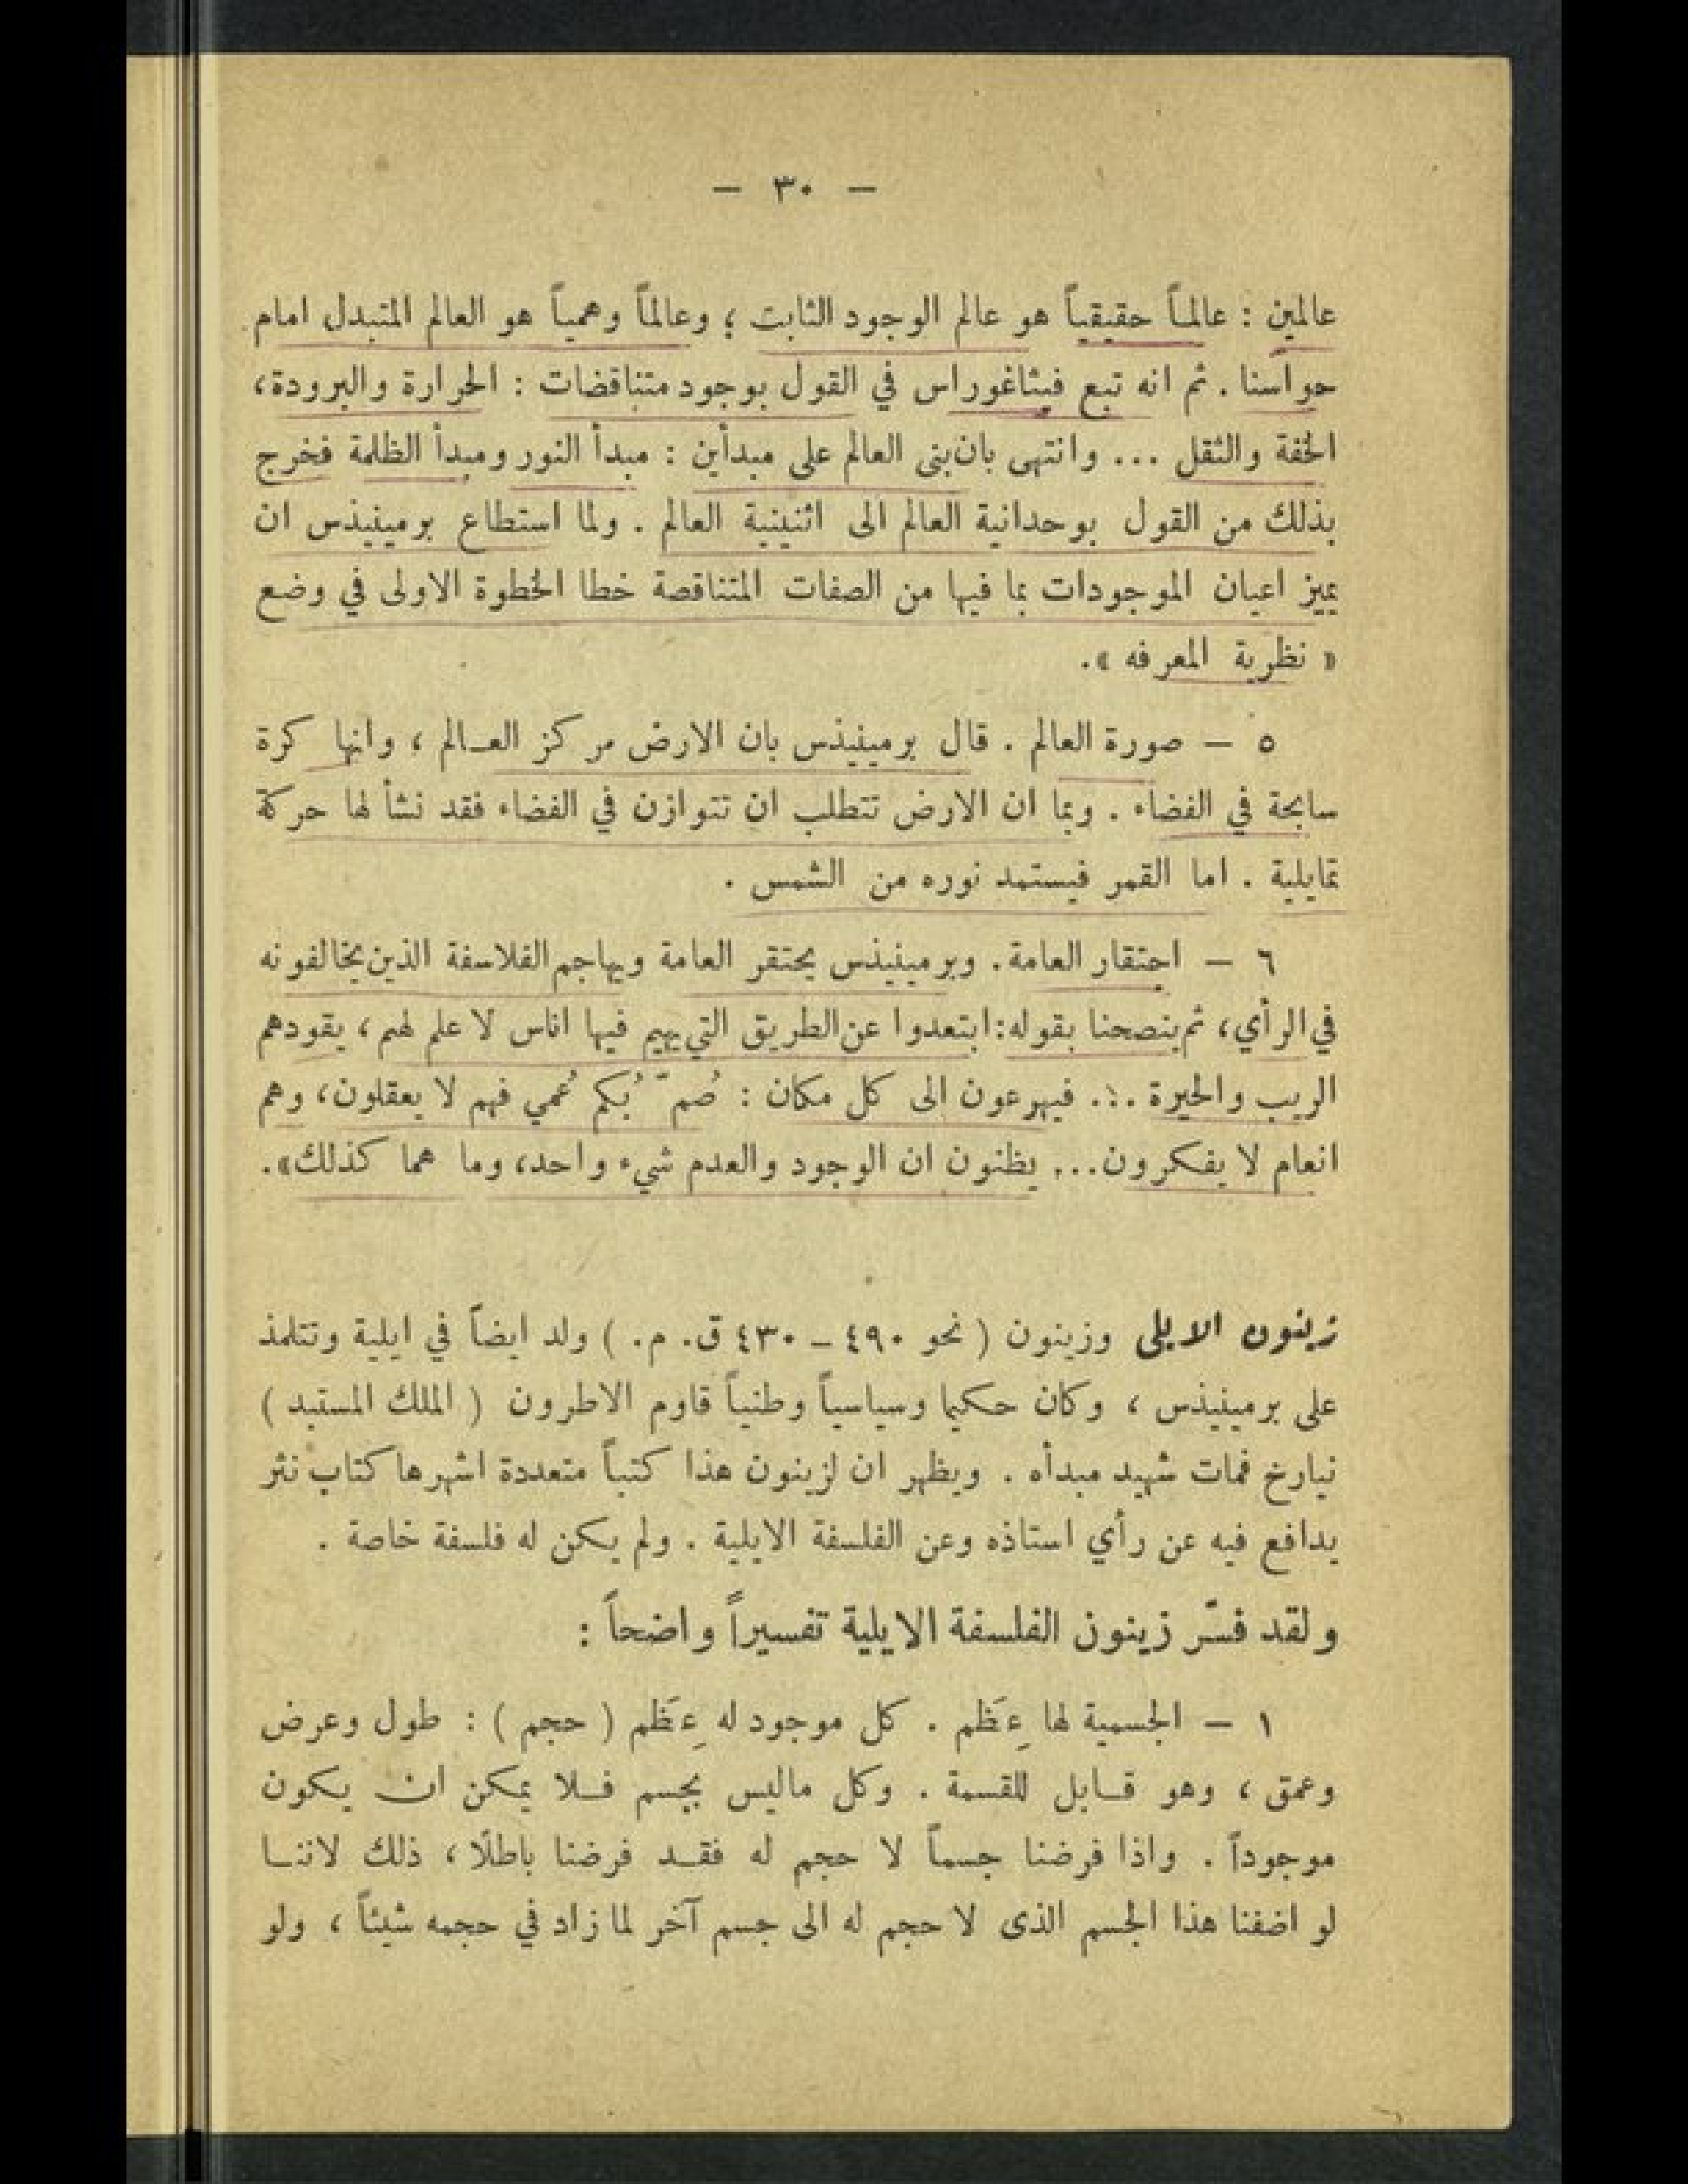 — ٣٠ —
عالمين : عالماً حقيقياً هو عالم الوجود الثابت ؛ وعالماً وهمياً هو العالم المتبدل امام
حواسنا . ثم انه تبع فيثاغوراس في القول بوجود متناقضات : الحرارة والبرودة،
الخفة والثقل ... وانتهى بان بنى العالم على مبدأين : مبدأ النور ومبدأ الظلمة فخرج
بذلك من القول بوحدانية العالم الى اثنينية العالم . ولما استطاع برمينيذس ان
يميز اعيان الموجودات بما فيها من الصفات المتناقصة خطا الخطوة الاولى في وضع
« نظرية المعرفه ».
٥ — صورة العالم . قال برمينيذس بان الارض مركز العـالم ، وانها كرة
سابحة في الفضاء . وبما ان الارض تتطلب ان تتوازن في الفضاء فقد نشأ لها حركة
تمايلية . اما القمر فيستمد نوره من الشمس .
٦ — احتقار العامة. وبرمينيذس يحتقر العامة ويهاجم الفلاسفة الذين يخالفونه
في الرأي، ثم ينصحنا بقوله: ابتعدوا عن الطريق التي يهيم فيها اناس لا علم لهم ، يقودهم
الريب والحيرة ... فيهرعون الى كل مكان : صُمّ بُكم عُمي فهم لا يعقلون، وهم
انعام لا يفكرون... يظنون ان الوجود والعدم شيء واحد، وما هما كذلك».
زينون الايلي وزينون ( نحو ٤٩٠ – ٤٣٠ ق. م. ) ولد ايضاً في ايلية وتتلمذ
على برمينيذس ، وكان حكيما وسياسياً وطنياً قاوم الاطرون ( الملك المستبد )
نيارخ فمات شهيد مبدأه . ويظهر ان لزينون هذا كتباً متعددة اشهرها كتاب نثر
يدافع فيه عن رأي استاذه وعن الفلسفة الايلية . ولم يكن له فلسفة خاصة .
ولقد فسّر زينون الفلسفة الايلية تفسيراً واضحاً :
١ — الجسمية لها عِظَم . كل موجود له عِظَم ( حجم ) : طول وعرض
وعمق ، وهو قـابل للقسمة . وكل ماليس بجسم فـلا يمكن ان يكون
موجوداً . واذا فرضنا جسماً لا حجم له فقـد فرضنا باطلًا ، ذلك لاننـا
لو اضفنا هذا الجسم الذى لا حجم له الى جسم آخر لما زاد في حجمه شيئاً ، ولو